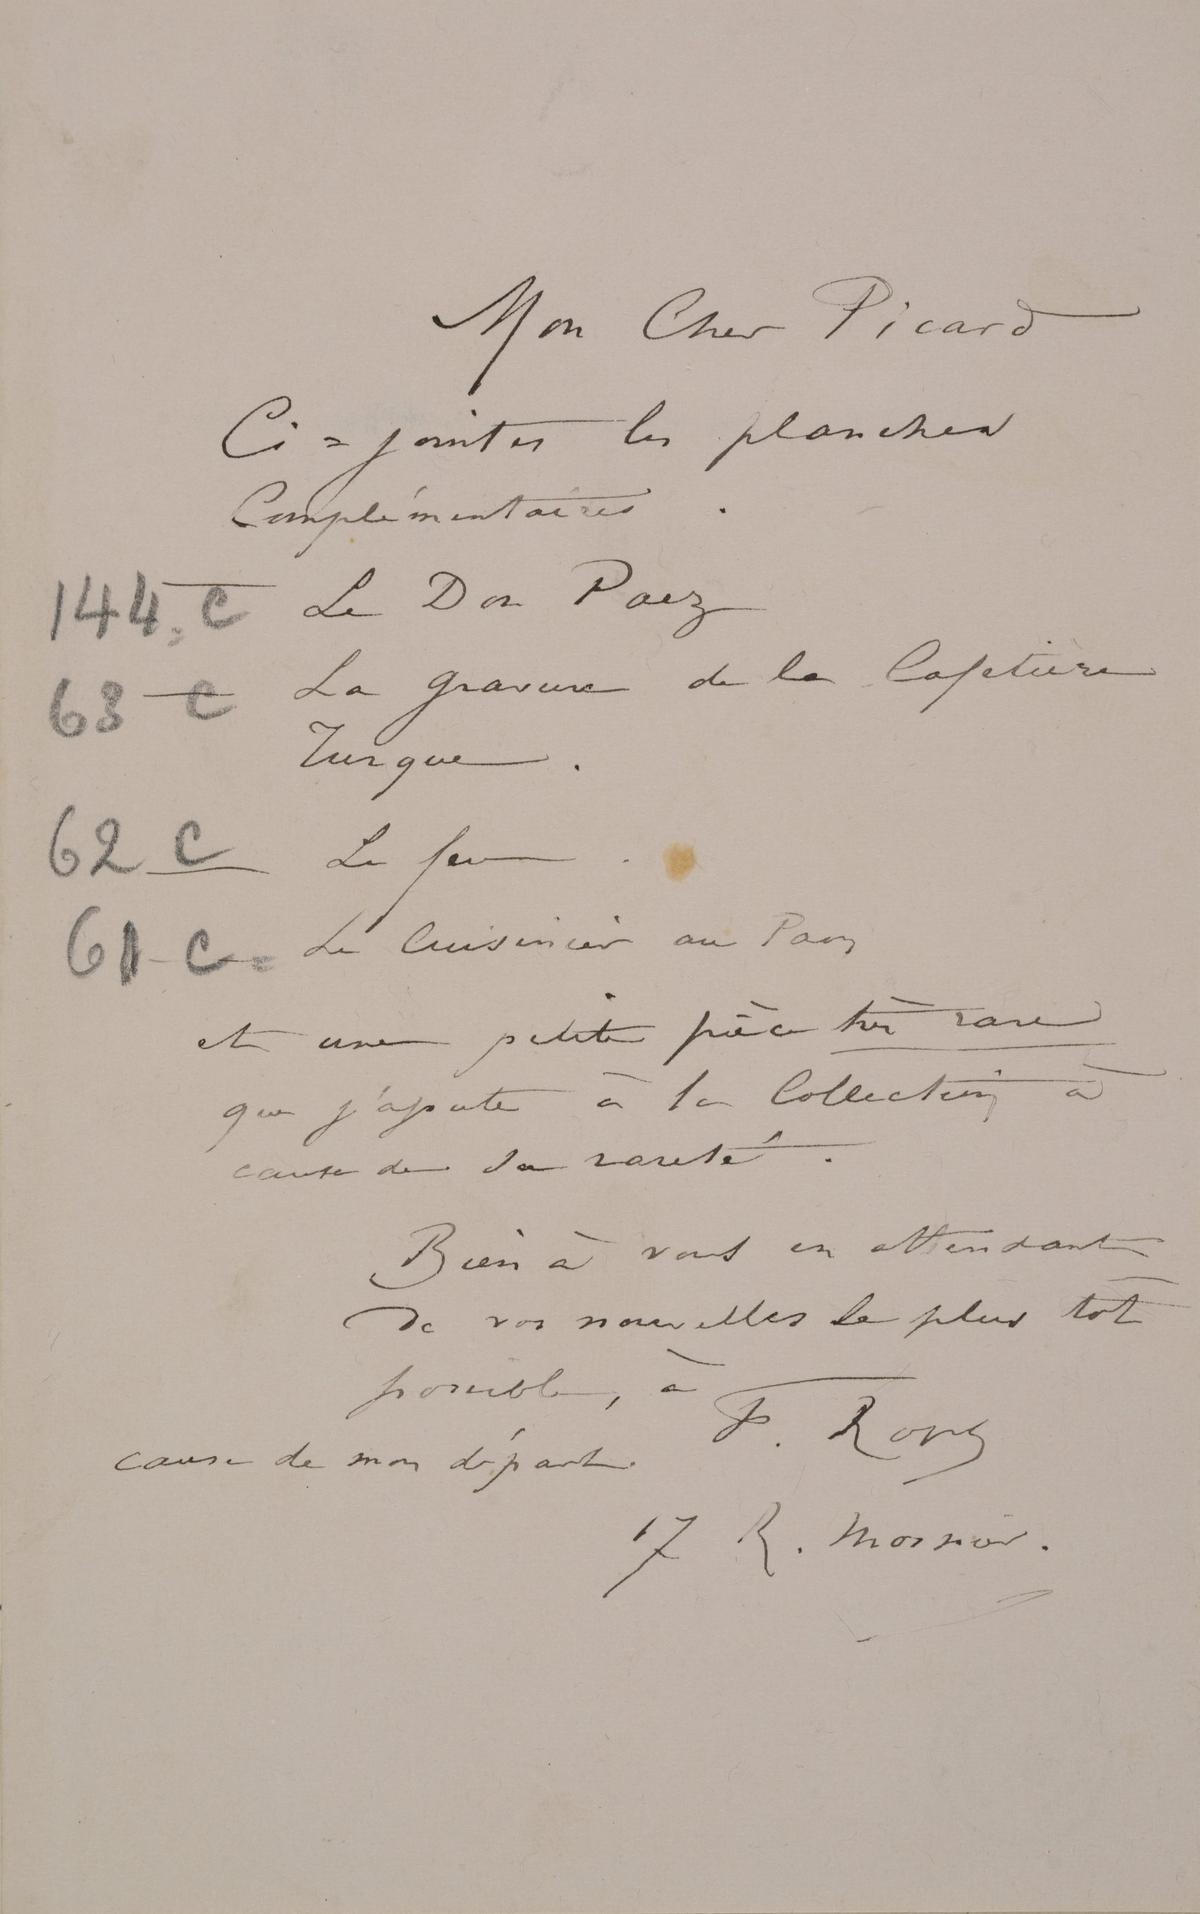 Mon Cher Picard
Ci=jointes les planches
Complémentaires .
144. C Le Don Paez
63 C La gravure de la Cafetière
Turque .
62 C Le feu .
61 C = Le Cuisinier au
et une petite pièce très rare
que j'ajoute à la Collection à
cause de sa rareté .
Bien à vous en attendant
de vos nouvelles le plus tôt
possible, à
F. Rops
cause de mon départ.
17 R. Mosnier.